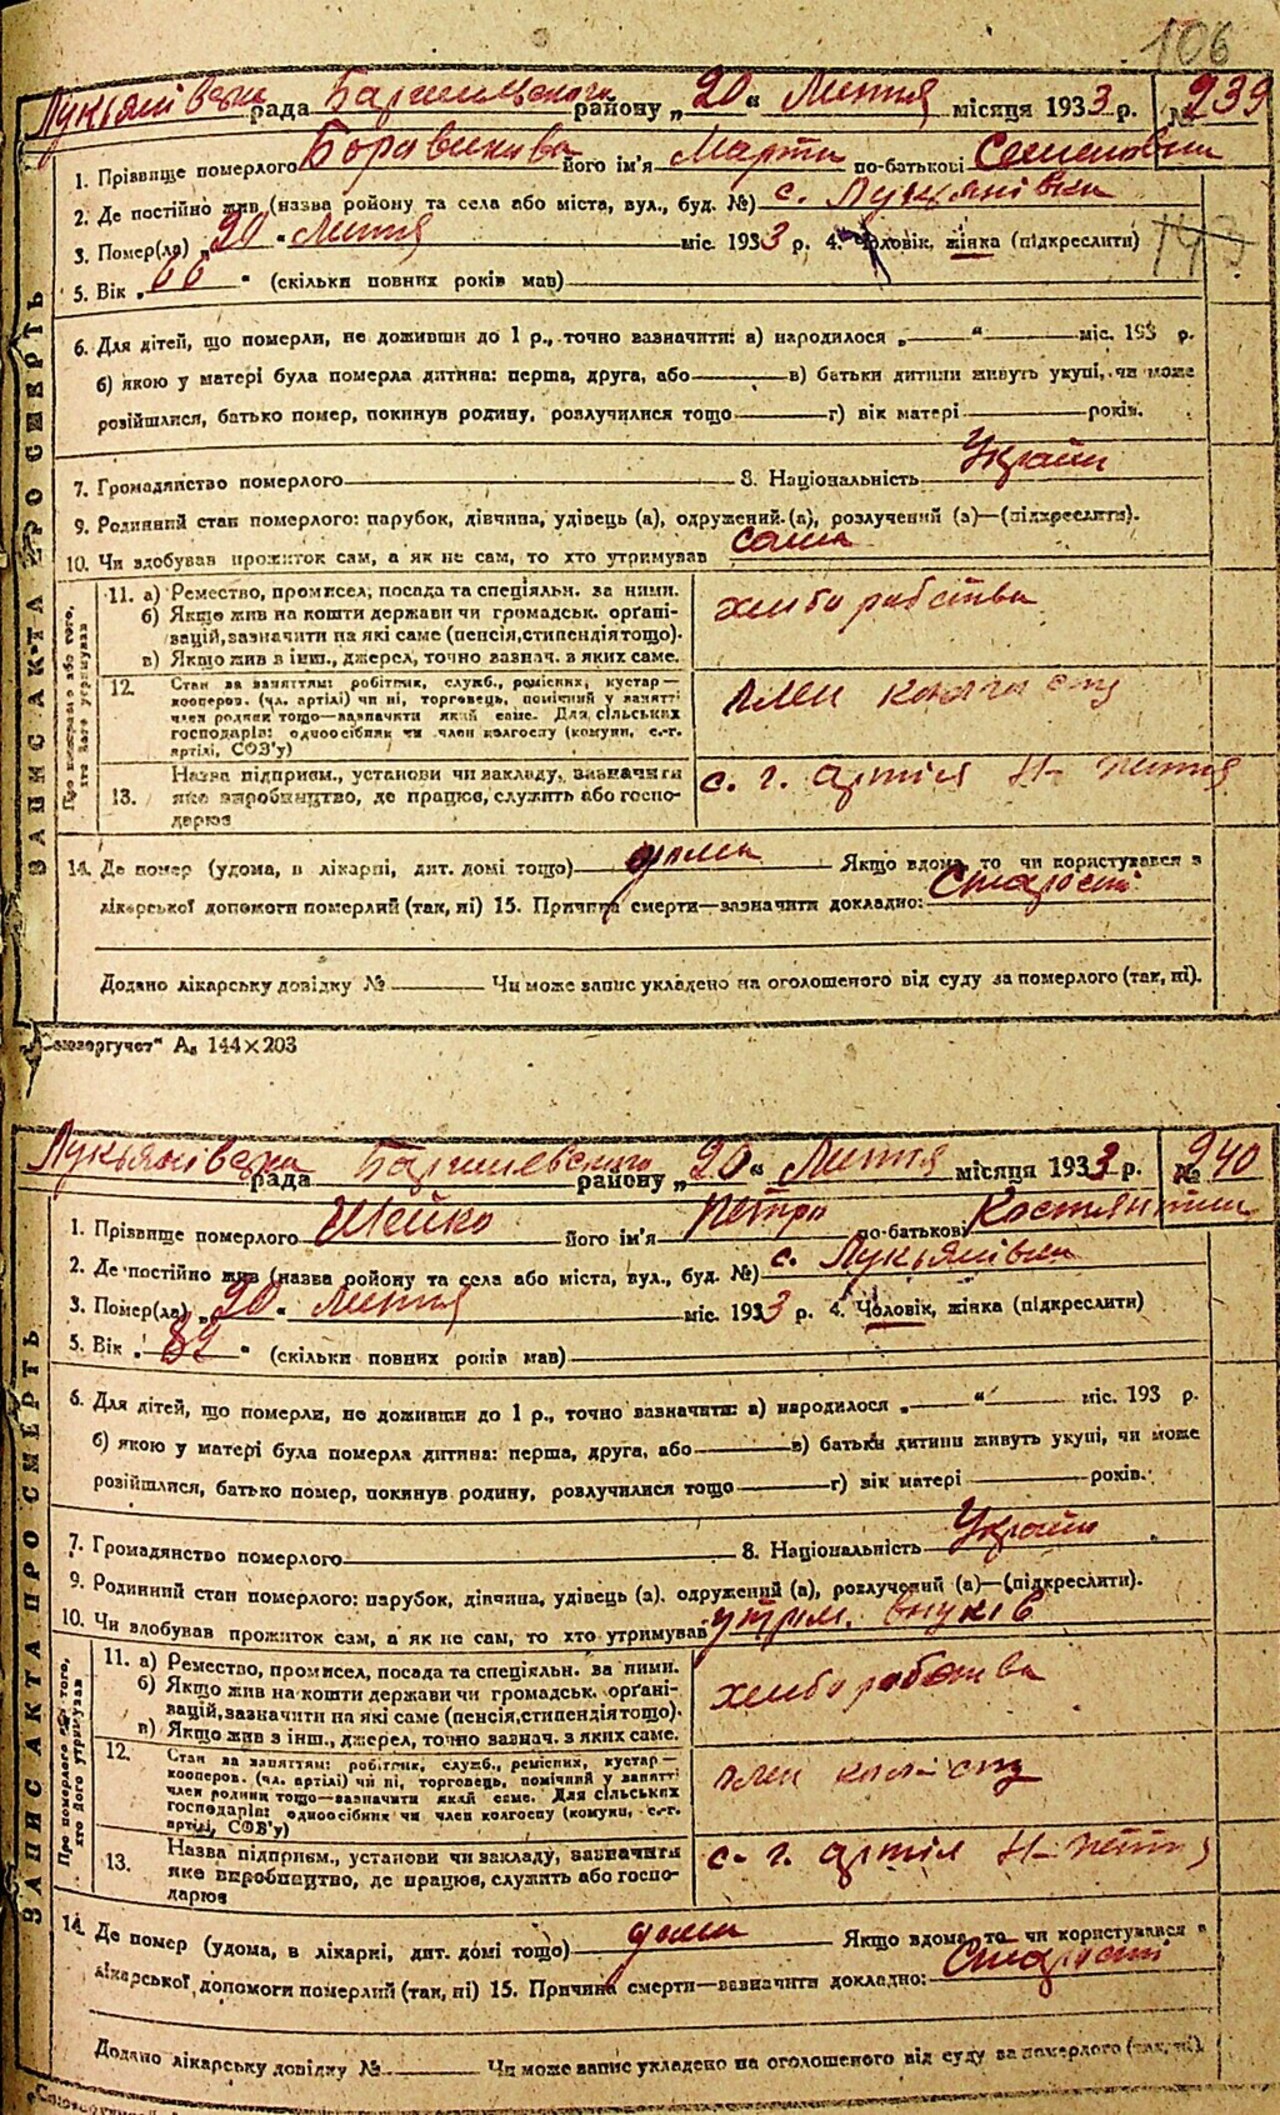 106
Лукьянівська рада Баришевського району „20“ Лютня місяця 1933 р. № 239
1. Прізвище померлого Боровикова його ім'я Марта по-батькові Семеновна
2. Де постійно жив (назва ройону та села або міста, вул., буд. №) с. Лукьянівка
3. Помер(ла) „20“ Лютня міс. 1933 р. 4. Чоловік, жінка (підкреслити)
5. Вік „66“ (скільки повних років мав)
6. Для дітей, що померли, не доживши до 1 р., точно вазначити: а) народилося „ “ міс. 193 р.
б) якою у матері була померла дитина: перша, друга, або в) батьки дитини живуть укупі, чи може
розійшлися, батько помер, покинув родину, розлучилися тощо г) вік матері років.
7. Громадянство померлого 8. Національність Україн
9. Родинний стан померлого: парубок, дівчина, удівець (а), одружений (а), розлучений (а)—(підкреслити).
10. Чи здобував прожиток сам, а як не сам, то хто утримував сама
ЗАПИС АКТА ПРО СМЕРТЬ
Про померлого або того, хто його утримував
11. а) Ремество, промисел, посада та спеціяльн. за ними.
б) Якщо жив на кошти держави чи громадськ. орґані-
вацій, зазначити на які саме (пенсія, стипендія тощо).
в) Якщо жив з інш., джерел, точно вазнач. з яких саме.
хлиборобства
12. Стан ва ваняттям: робітник, служб., ремісник, кустар—
кооперов. (чл. артілі) чи ні, торговець, помічний у ванятті
член родини тощо—вазначити який саме. Для сільських
господарів: одноосібник чи член колгоспу (комуни, с.-г.
артілі, СОЗ'у)
член
13. Назва підприєм., установи чи вакладу, вазначити
яке виробництво, де працює, служить або госпо-
дарює
с. г. артіл
14. Де помер (удома, в лікарні, дит. домі тощо) дома Якщо вдома, то чи користувався в
лікарської допомоги померлий (так, ні) 15. Причина смерти—зазначити докладно: Старости
Додано лікарську довідку № Чи може запис укладено на оголошеного від суду за померлого (так, ні).
„Союзоргучет“ А₅ 144×203
Лукьянівська рада Баришевського району „20“ Лютня місяця 1933 р. № 240
1. Прізвище померлого Шейко його ім'я Петро по-батькові Костянтин
2. Де постійно жив (назва ройону та села або міста, вул., буд. №) с. Лукьянівка
3. Помер(ла) „20“ Лютня міс. 1933 р. 4. Чоловік, жінка (підкреслити)
5. Вік „89“ (скільки повних років мав)
6. Для дітей, що померли, не доживши до 1 р., точно вазначити: а) народилося „ “ міс. 193 р.
б) якою у матері була померла дитина: перша, друга, або в) батьки дитини живуть укупі, чи може
розійшлися, батько помер, покинув родину, розлучилися тощо г) вік матері років.
7. Громадянство померлого 8. Національність Україн
9. Родинний стан померлого: парубок, дівчина, удівець (а), одружений (а), розлучений (а)—(підкреслити).
10. Чи здобував прожиток сам, а як не сам, то хто утримував утрим. внуків
ЗАПИС АКТА ПРО СМЕРТЬ
Про померлого або того, хто його утримував
11. а) Ремество, промисел, посада та спеціяльн. за ними.
б) Якщо жив на кошти держави чи громадськ. орґані-
вацій, зазначити на які саме (пенсія, стипендія тощо).
в) Якщо жив з інш., джерел, точно вазнач. з яких саме.
хлиборобства
12. Стан ва ваняттям: робітник, служб., ремісник, кустар—
кооперов. (чл. артілі) чи ні, торговець, помічний у ванятті
член родини тощо—вазначити який саме. Для сільських
господарів: одноосібник чи член колгоспу (комуни, с.-г.
артілі, СОЗ'у)
член
13. Назва підприєм., установи чи вакладу, вазначити
яке виробництво, де працює, служить або госпо-
дарює
с. г. артіл
14. Де помер (удома, в лікарні, дит. домі тощо) дома Якщо вдома, то чи користувався в
лікарської допомоги померлий (так, ні) 15. Причина смерти—вазначити докладно: Старости
Додано лікарську довідку № Чи може вапис укладено на оголошеного від суду ва померлого (так, ні).
„Союзоргучет“